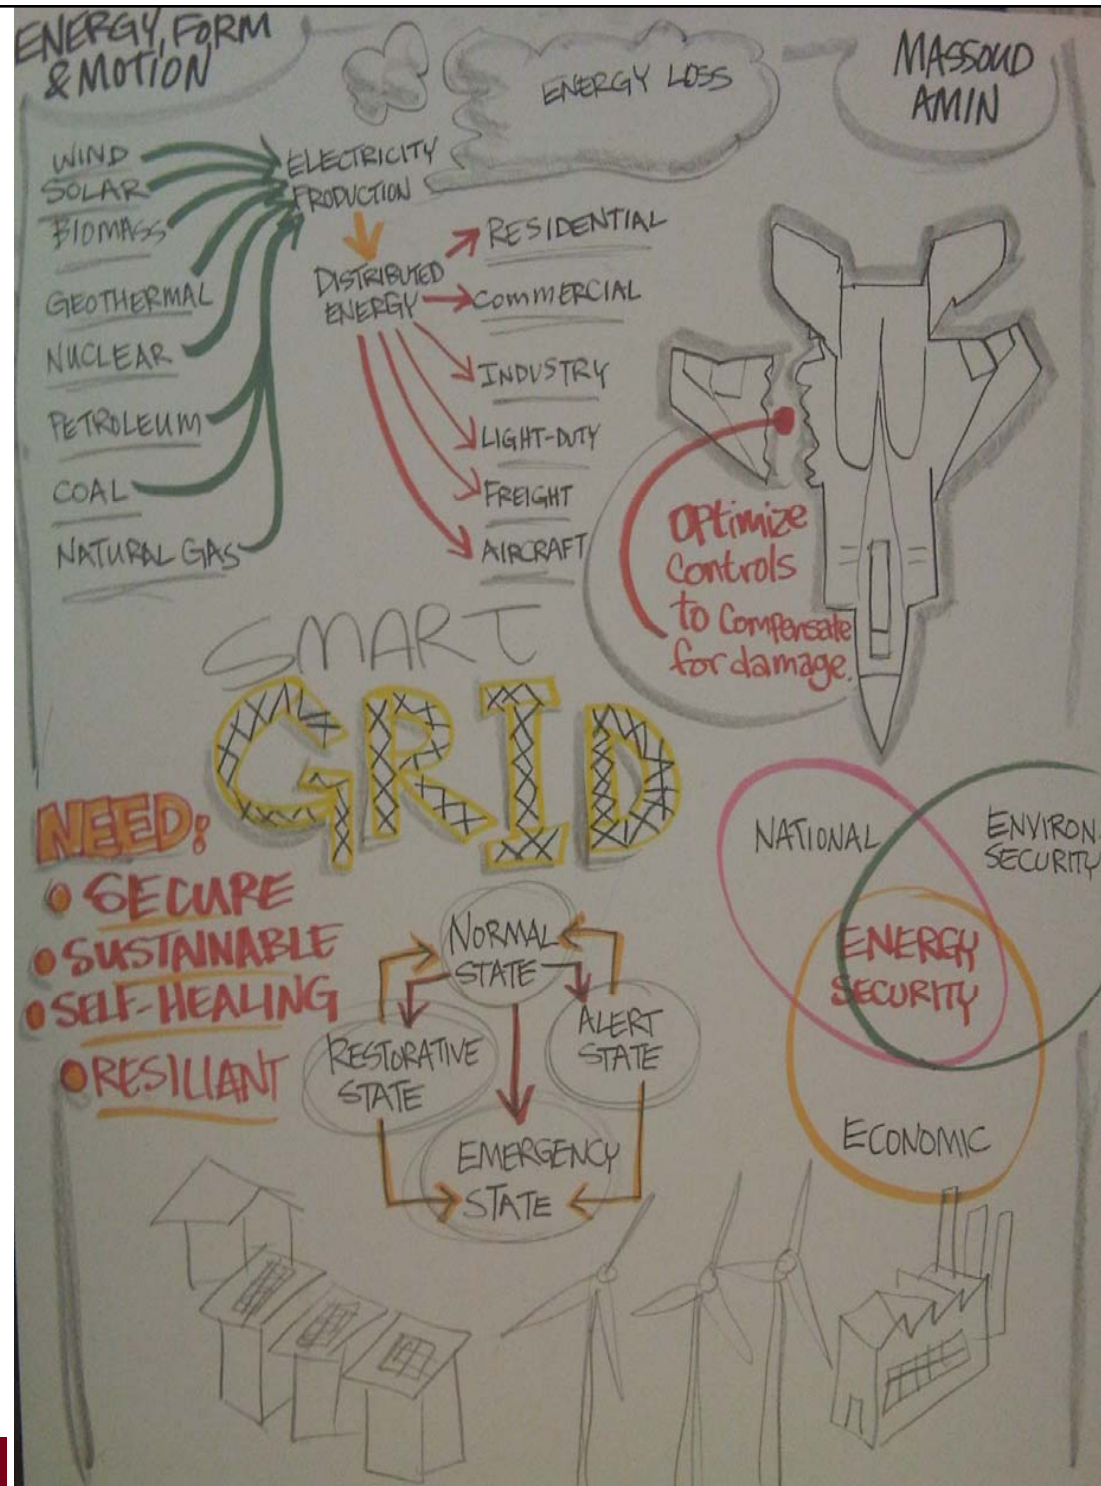 ENERGY, FORM
& MOTION
ENERGY LOSS
MASSOUD
AMIN
WIND
SOLAR
BIOMASS
GEOTHERMAL
NUCLEAR
PETROLEUM
COAL
NATURAL GAS
ELECTRICITY
PRODUCTION
DISTRIBUTED
ENERGY
RESIDENTIAL
COMMERCIAL
INDUSTRY
LIGHT-DUTY
FREIGHT
AIRCRAFT
OPtimize
Controls
to Compensate
for damage.
SMART
GRID
NEED:
SECURE
SUSTAINABLE
SELF-HEALING
RESILIANT
NORMAL
STATE
RESTORATIVE
STATE
ALERT
STATE
EMERGENCY
STATE
NATIONAL
ENVIRON.
SECURITY
ENERGY
SECURITY
ECONOMIC